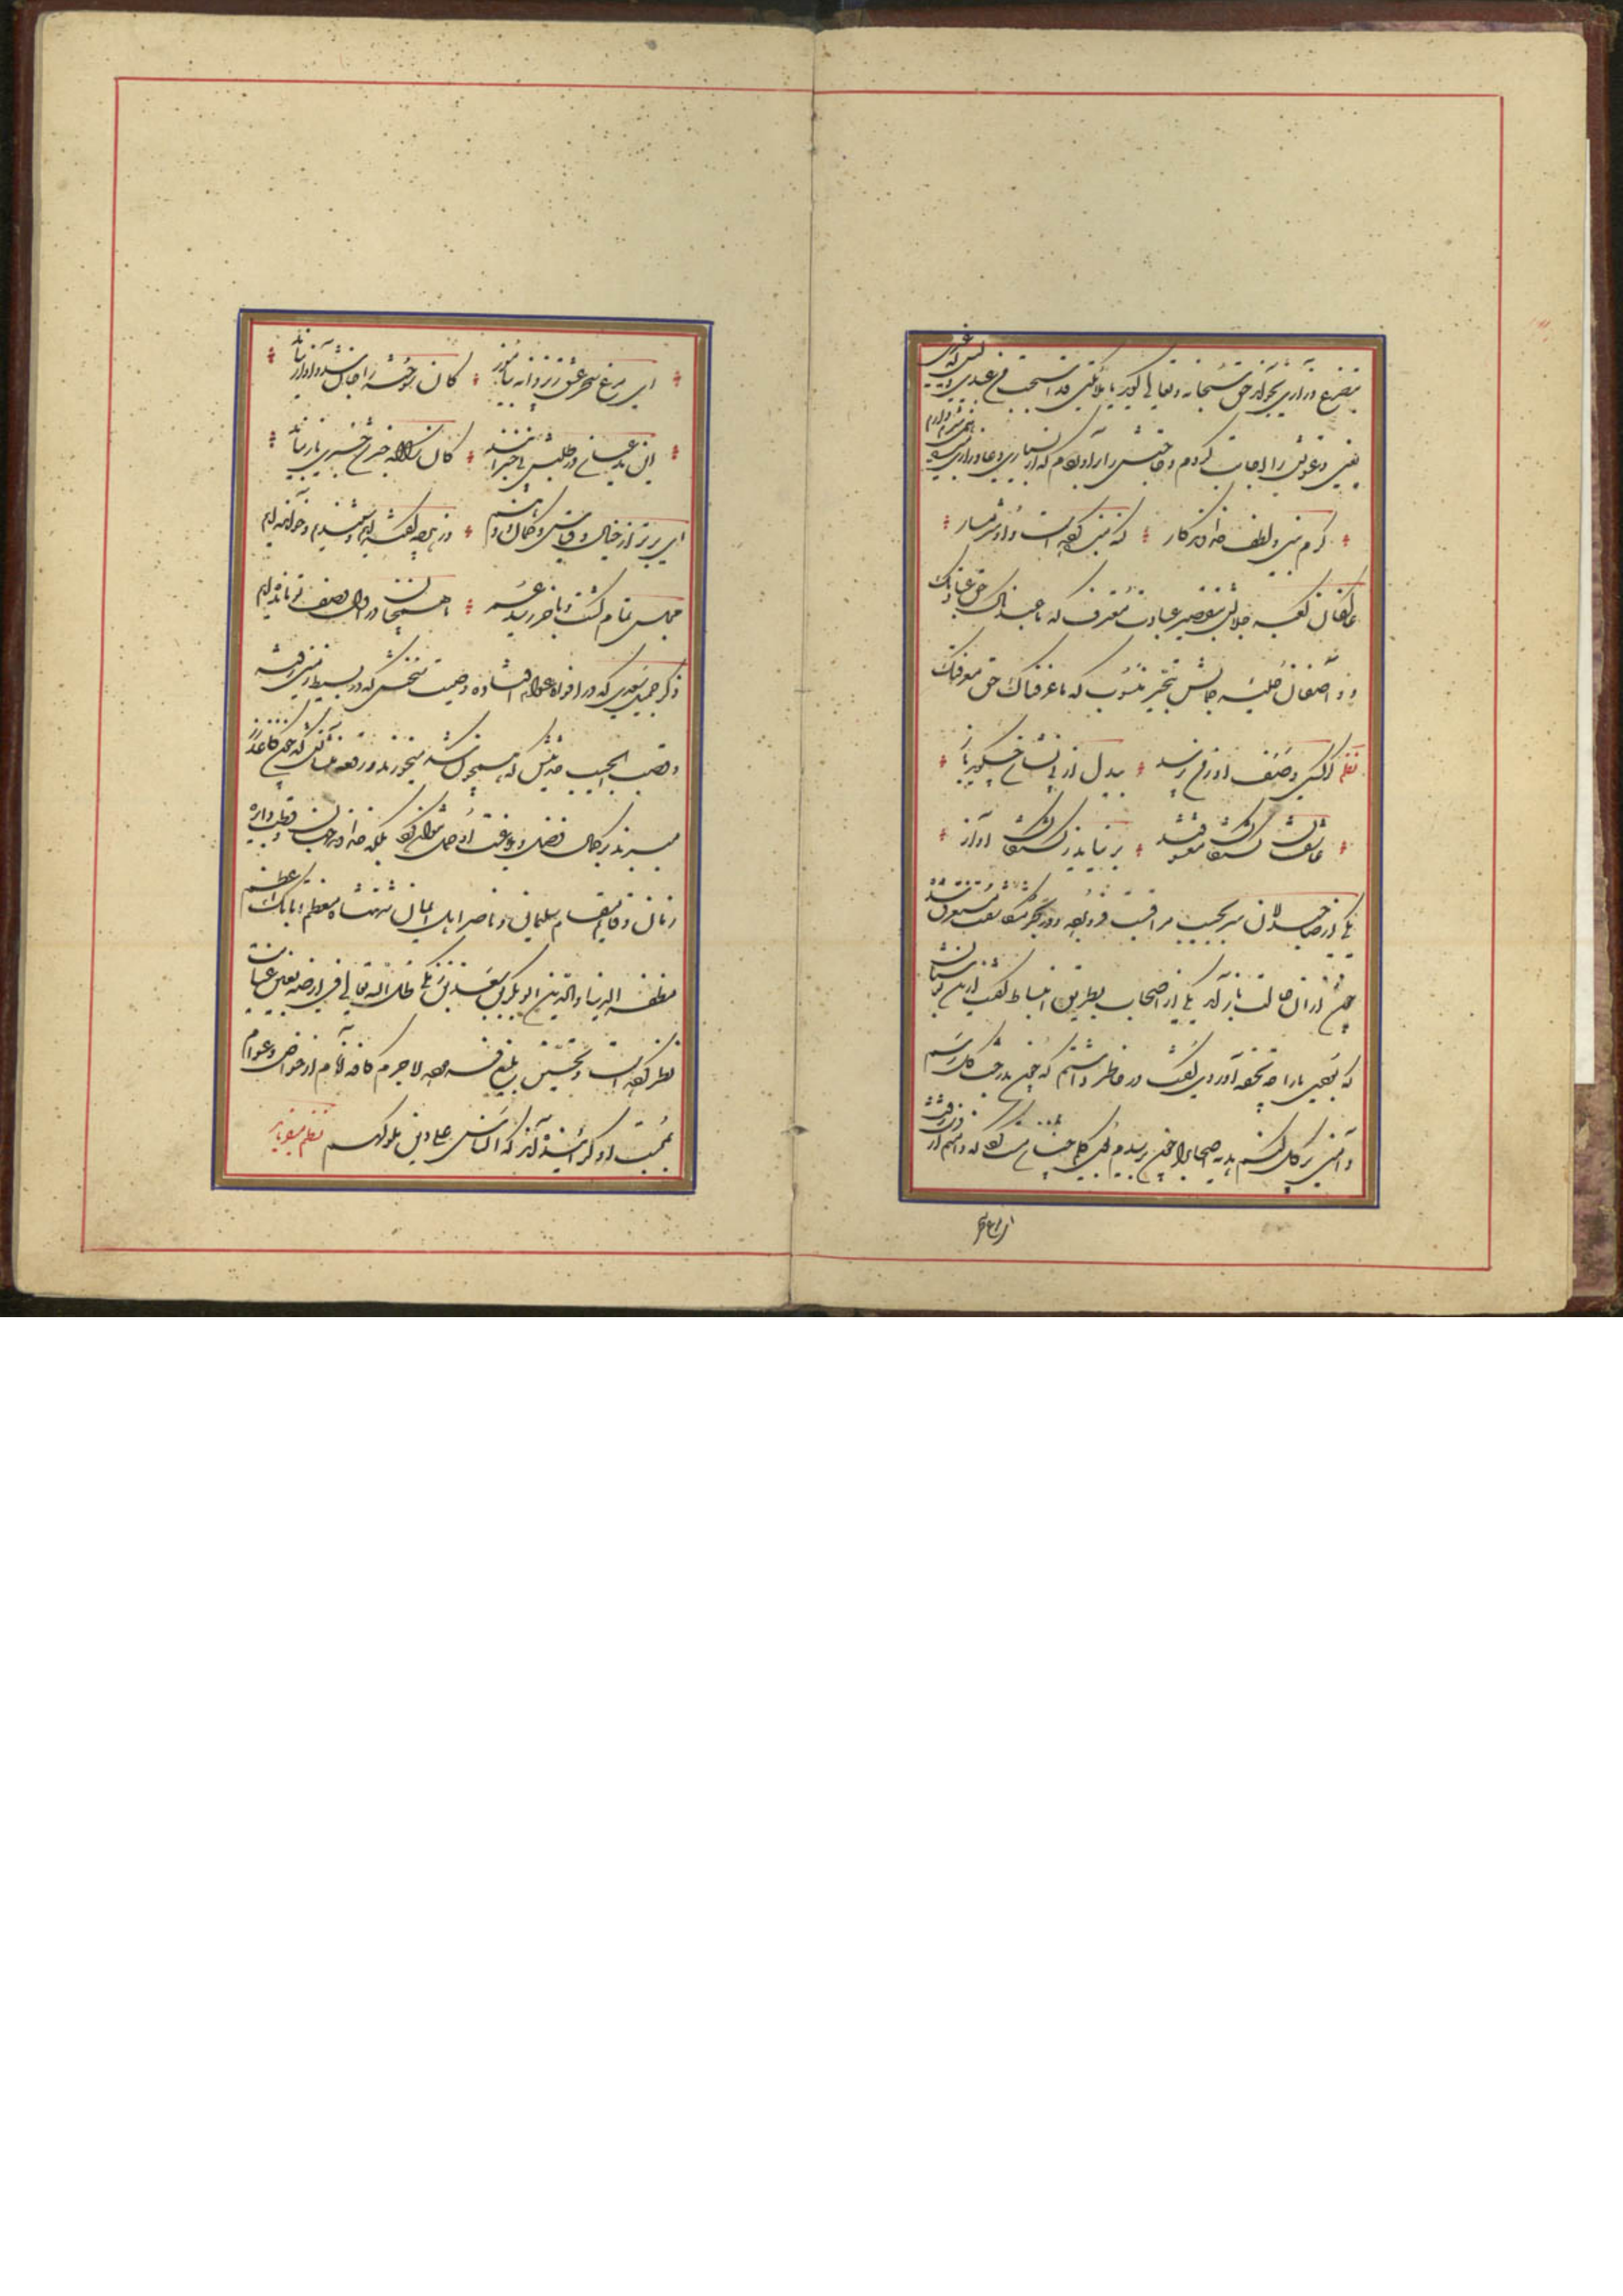 بتضرع و زاری بخواند حق سبحانه و تعالی گوید یا ملائکتی قد استحییت من عبدی و لیس له غیری
یعنی دعوتش را اجابت کردم و حاجتش را برآوردم که از بسیاری دعا و زاری بنده همی شرم دارم
کرم بین و لطف خداوندگار که بنده کرده است و او شرمسار
عاکفان کعبه جلالش بتقصیر عبادت معترف که ما عبدناک حق عبادتک
و واصفان حلیه جمالش بتحیر منسوب که ما عرفناک حق معرفتک
نظم گر کسی وصف او ز من پرسد بیدل از بی نشان چه گوید باز
عاشقان کشتگان معشوقند بر نیاید ز کشتگان آواز
یکی از صاحبدلان سر بجیب مراقبت فرو برده و در بحر مکاشفت مستغرق شده
چون از آن حالت باز آمد یکی از اصحاب بطریق انبساط گفت ازین بوستان
که بودی ما را چه تحفه آوردی گفت در خاطر داشتم که چون بدرخت گل رسم
دامنی پر گل کنم هدیه اصحاب را چون برسیدم بوی گلم چنان مست کرد که دامنم از دست برفت
ای مرغ سحر عشق ز پروانه بیاموز کان سوخته را جان شد و آواز نیامد
این مدعیان در طلبش بی خبرانند کان را که خبر شد خبری باز نیامد
ای برتر از خیال و قیاس و گمان و وهم وز هر چه گفته اند و شنیدیم و خوانده ایم
مجلس تمام گشت و بآخر رسید عمر ما همچنان در اول وصف تو مانده ایم
ذکر جمیل سعدی که در افواه عوام افتاده و صیت سخنش که در بسیط زمین رفته
و قصب الجیب حدیثش که همچون شکر میخورند و رقعه منشآتش که چون کاغذ زر
میبرند بر کمال فضل و بلاغت او حمل نتوان کرد بلکه خداوند جهان و قطب دایره
زمان و قایم مقام سلیمان و ناصر اهل ایمان شهنشاه معظم اتابک اعظم
مظفر الدنیا و الدین ابوبکر بن سعد بن زنگی ظل الله تعالی فی ارضه بعین عنایت
نظر کرده است و تحسین بلیغ فرموده لاجرم کافه انام از خواص و عوام
بمحبت او گراینده اند که الناس علی دین ملوکهم نظم